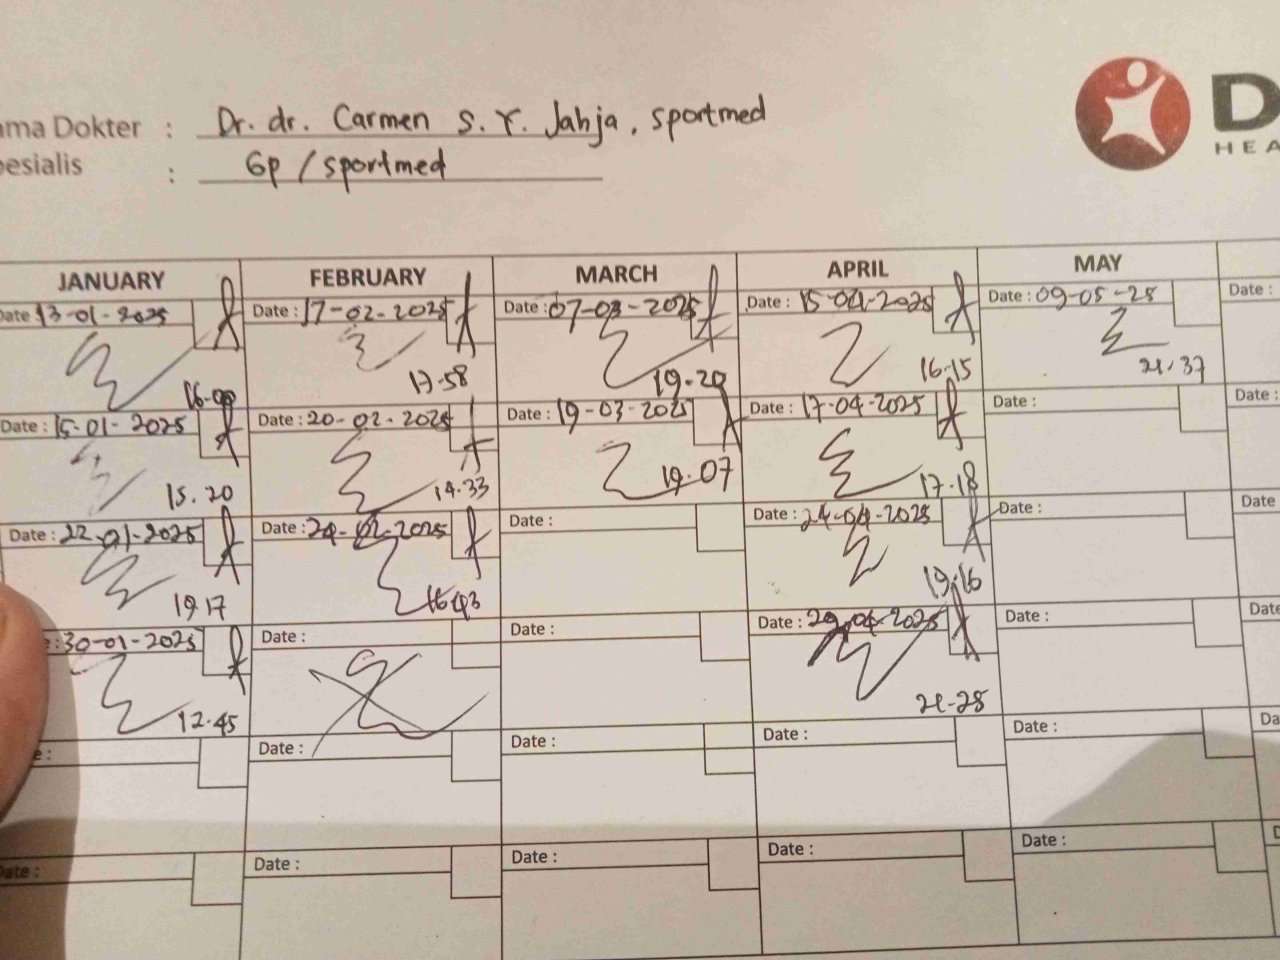 ama Dokter : Dr. dr. Carmen S. Y. Jahja, sportmed
esialis : Gp / sportmed
D
HEA
JANUARY FEBRUARY MARCH APRIL MAY
Date 13-01-2025 Date : 17-02-2025 Date : 07-03-2025 Date : 15-04-2025 Date : 09-05-25 Date :
16-00 17-58 19-20 16-15 21.37
Date : 15-01-2025 Date : 20-02-2025 Date : 19-03-2025 Date : 17-04-2025 Date : Date :
15.20 14.33 19.07 17.18
Date : 22-01-2025 Date : 24-02-2025 Date : Date : 24-04-2025 Date : Date
19 17 16.43 19.16
: 30-01-2025 Date : Date : Date : 29-04-2025 Date : Date
12.45 21-28
e : Date : Date : Date : Date : Da
Date : Date : Date : Date : Date :